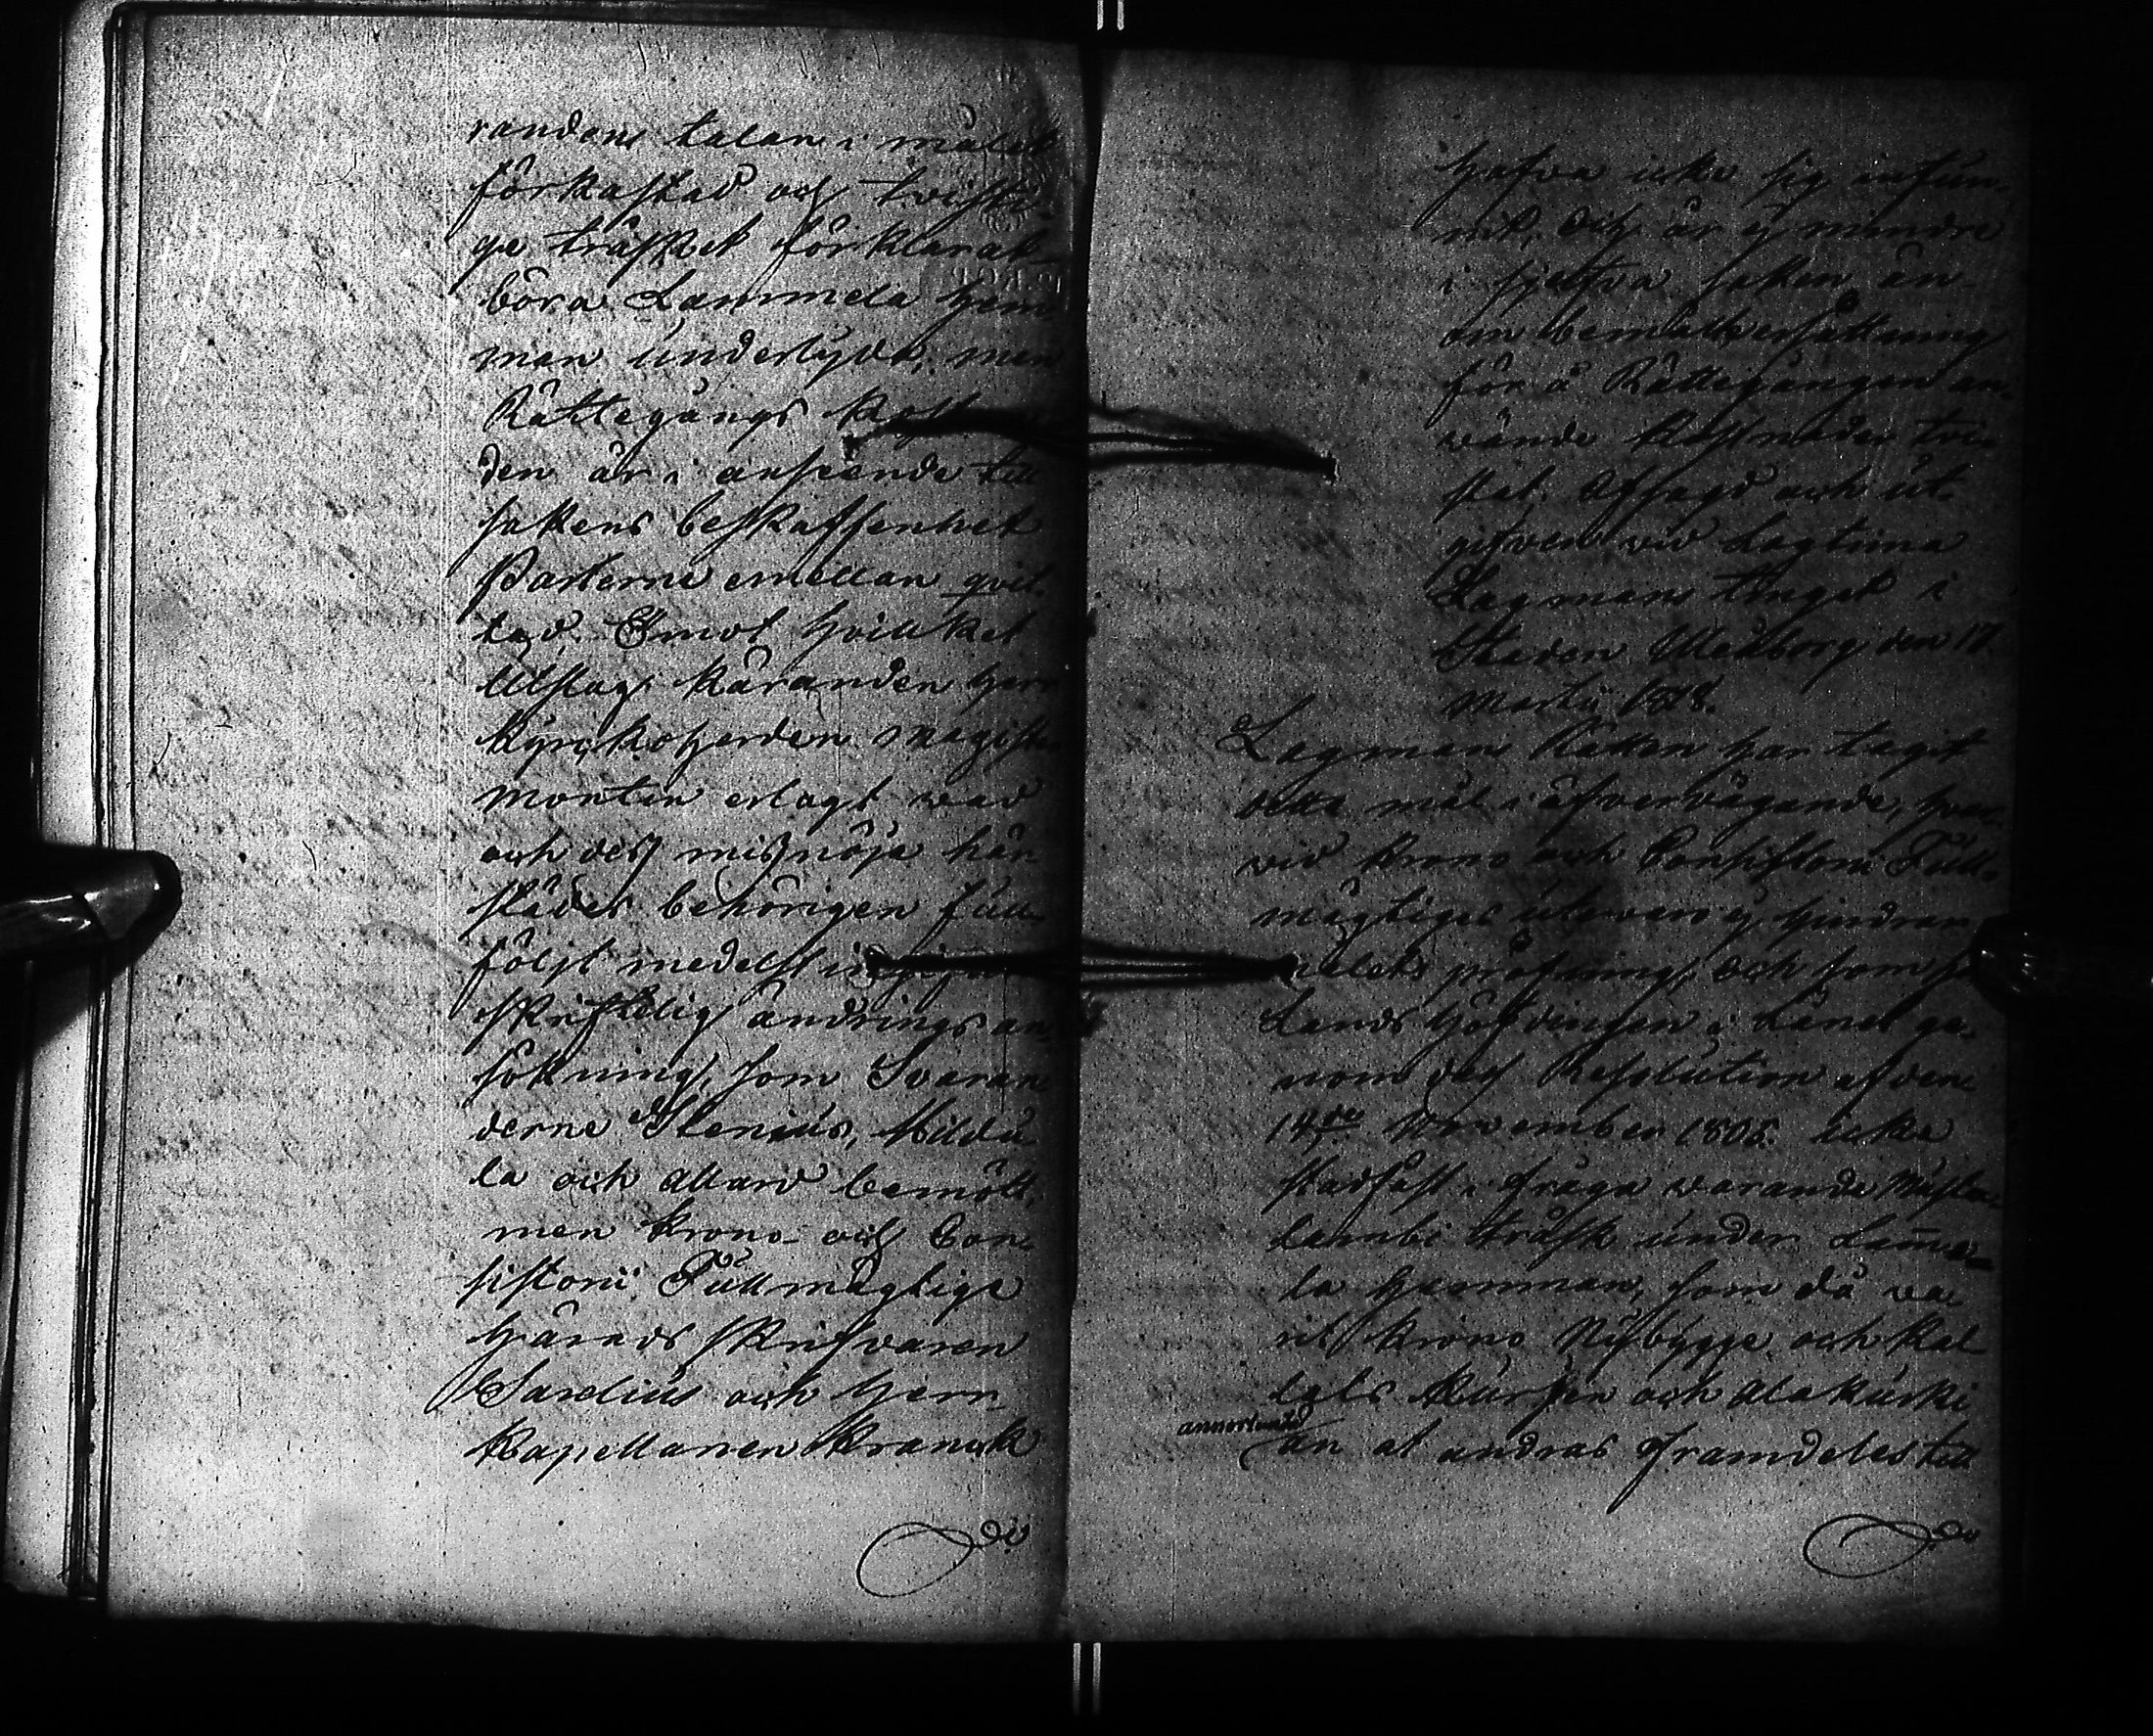 randens talan i målet
förkastad och tvisti-
ge träsket förklarat
böra Lammela hem
man underlyda; men
Rättegångs kost
den är i anseende till
sakens beskaffenhet
Parterne emellan qvit-
tad. Emot hvilket
Utslag Käranden Herr
Kyrckoherden Magister
Montin erlagt vad
och dess misnöje här
städes behörigen full-
följt medelst
skriftelig ändrings an-
sökning, som Svaran
derne Stenius, Uldu
la och Allard bemött,
men Krono- och Con-
sistorii Fullmägtige
Härads Skrifvaren
Sarelius och Herr
Kapellanen Kranck
hafva icke sig infun-
nit. Och är ej mindre
i sjelfva saken än
om bemälte ersättning
för å Rättegången an-
vände kostnader tvi-
stat. Afsagd och ut-
gifven vid Lagtima
Lagmans tinget i
Staden Uleåborg den 17
Martii 1818.
Lagmans Rätten har tagit
detta mål i öfvervägande, hvar
vid Krono och Consistorii Full-
mägtiges utevaro ej hindrar
målets pröfning, och som
Lands Höfdingen i Länet ge-
nom dess Resolution af den
14de November 1806. icke
stadfäst i fråga varande Musta-
lambi träsk under Lamme-
la Hemman, som då va-
rit Krono Nybygge och kal-
lats Kursu och Alakurki
annorlunda
än at andras framdeles till